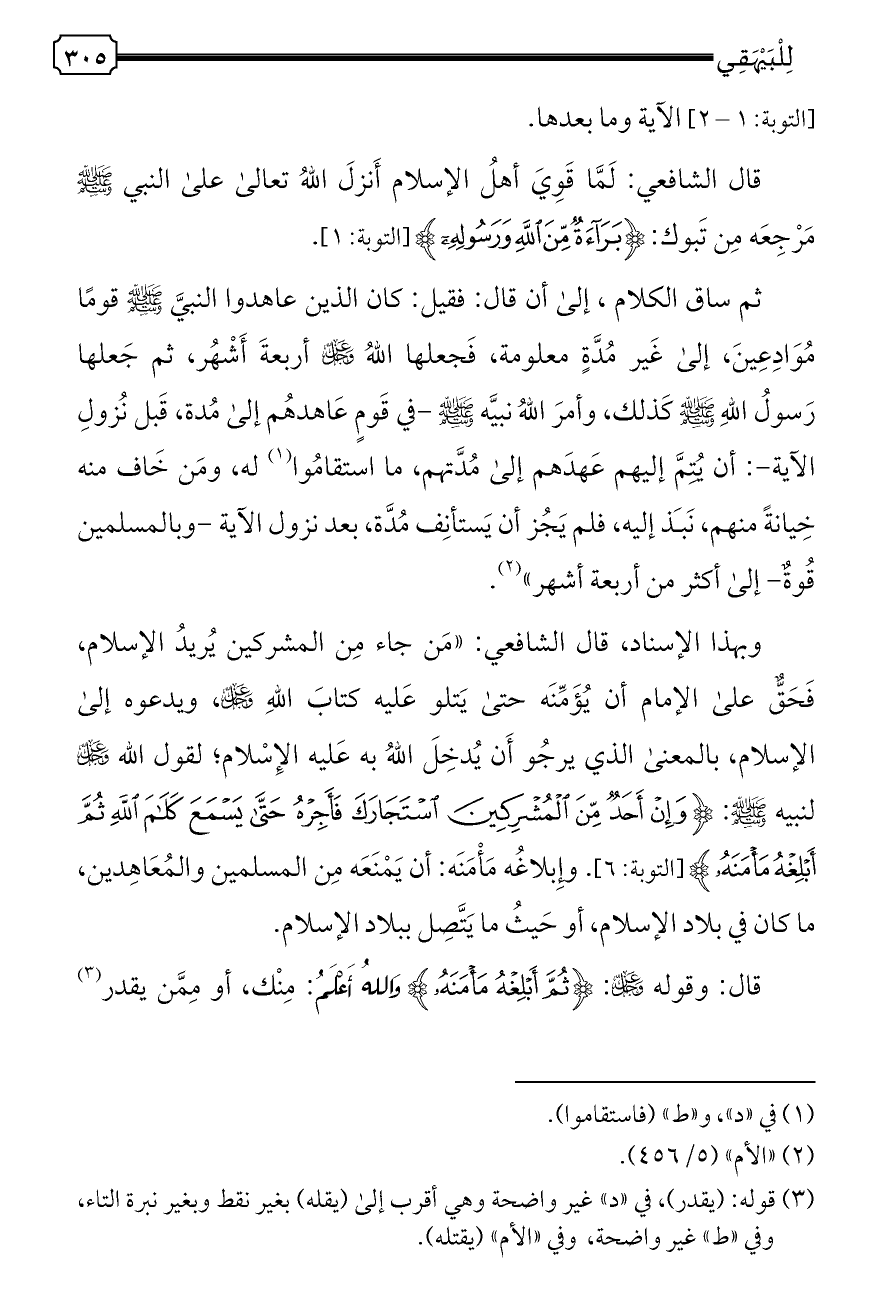 لِلْبَيْهَقِي
٣٠٥
[التوبة: ١ – ٢] الآية وما بعدها.
قال الشافعي: لَمَّا قَوِيَ أهلُ الإسلام أَنزلَ اللهُ تعالىٰ علىٰ النبي ﷺ
مَرْجِعَه مِن تَبوك: ﴿بَرَآءَةٌ مِّنَ ٱللَّهِ وَرَسُولِهِۦٓ﴾ [التوبة: ١].
ثم ساق الكلام ، إلىٰ أن قال: فقيل: كان الذين عاهدوا النبيَّ ﷺ قومًا
مُوَادِعِينَ، إلىٰ غَير مُدَّةٍ معلومة، فَجعلها اللهُ عَزَّوَجَلَّ أربعةَ أَشْهُر، ثم جَعلها
رَسولُ اللهِ ﷺ كَذلك، وأمرَ اللهُ نبيَّه ﷺ -في قَومٍ عَاهدهُم إلىٰ مُدة، قَبل نُزولِ
الآية-: أن يُتِمَّ إليهم عَهدَهم إلىٰ مُدَّتهم، ما استقامُوا(١) له، ومَن خَاف منه
خِيانةً منهم، نَبَـذ إليه، فلم يَجُز أن يَستأنِف مُدَّة، بعد نزول الآية -وبالمسلمين
قُوةٌ- إلىٰ أكثر من أربعة أشهر»(٢).
وبهذا الإسناد، قال الشافعي: «مَن جاء مِن المشركين يُريدُ الإسلام،
فَحَقٌّ علىٰ الإمام أن يُؤَمِّنَه حتىٰ يَتلو عَليه كتابَ اللهِ عَزَّوَجَلَّ، ويدعوه إلىٰ
الإسلام، بالمعنىٰ الذي يرجُو أَن يُدخِلَ اللهُ به عَليه الإِسْلام؛ لقول الله عَزَّوَجَلَّ
لنبيه ﷺ: ﴿وَإِنۡ أَحَدٌ مِّنَ ٱلۡمُشۡرِكِينَ ٱسۡتَجَارَكَ فَأَجِرۡهُ حَتَّىٰ يَسۡمَعَ كَلَٰمَ ٱللَّهِ ثُمَّ
أَبۡلِغۡهُ مَأۡمَنَهُۥ﴾ [التوبة: ٦]. وإِبلاغُه مَأْمَنَه: أن يَمْنَعَه مِن المسلمين والمُعَاهِدين،
ما كان في بلاد الإسلام، أو حَيثُ ما يَتَّصِل ببلاد الإسلام.
قال: وقوله عَزَّوَجَلَّ: ﴿ثُمَّ أَبۡلِغۡهُ مَأۡمَنَهُۥ﴾ وَاللهُ أَعْلَمُ: مِنْك، أو مِمَّن يقدر(٣)
(١) في «د»، و«ط» (فاستقاموا).
(٢) «الأم» (٥/ ٤٥٦).
(٣) قوله: (يقدر)، في «د» غير واضحة وهي أقرب إلىٰ (يقله) بغير نقط وبغير نبرة التاء،
وفي «ط» غير واضحة، وفي «الأم» (يقتله).